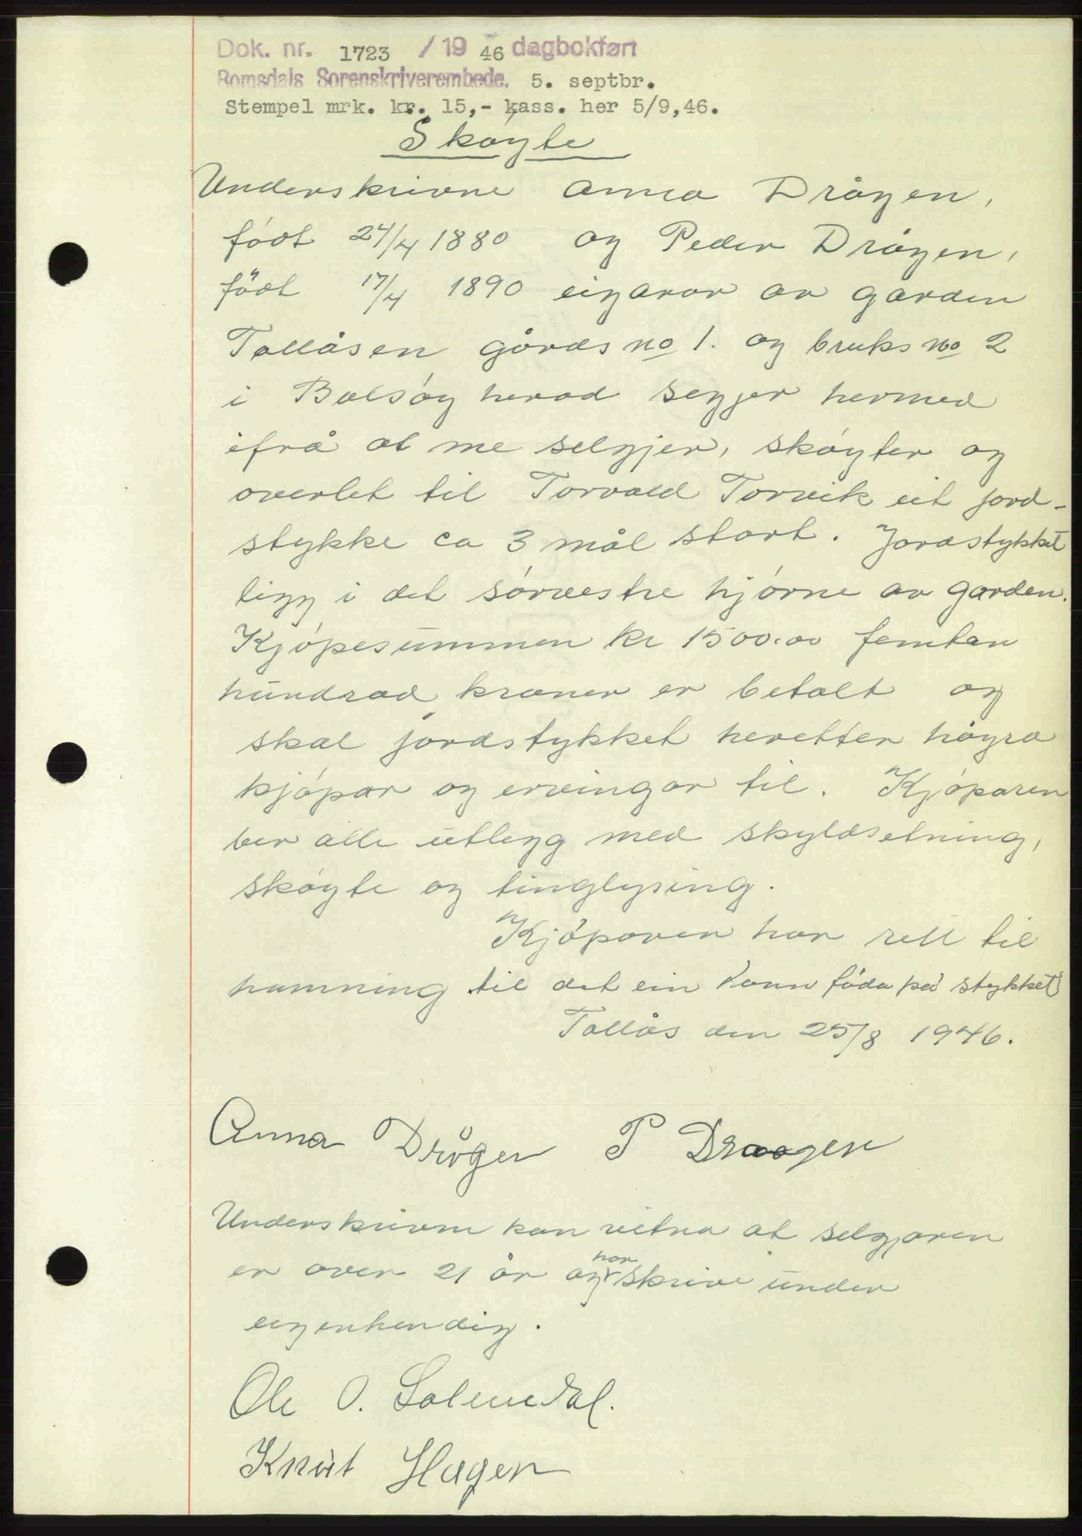 Dok. nr. 1723 / 19 46 dagbokført
Romsdals Sorenskriverembede. 5. septbr.
Stempel mrk. kr. 15,- kass. her 5/9,46.
Skøyte
Underskrivne Anna Drågen,
født 24/4 1880 og Peder Drågen,
født 17/4 1890 eigarar av garden
Tollåsen gårds no 1. og bruks no 2
i Bolsøy herad segjer hermed
ifrå at me selgjer, skøyter og
overlet til Torvald Torvik eit jord-
stykke ca 3 mål stort. Jordstykket
ligg i det sørvestre hjørne av garden.
Kjøpesummen kr 1500.00 femtan
hundrad kroner er betalt og
skal jordstykket heretter høyra
kjøpar og ervingar til. Kjøparen
ber alle utlegg med skyldsetning,
skøyte og tinglysing.
Kjøparen har rett til
hamning til det ein kann føda på stykket
Tollås den 25/8 1946.
Anna Drågen P Draagen
Underskrivne kan vitna at selgjaren
er over 21 år og har skrive under
eigenhendig.
Ole O. Solemdal.
Knut Hagen